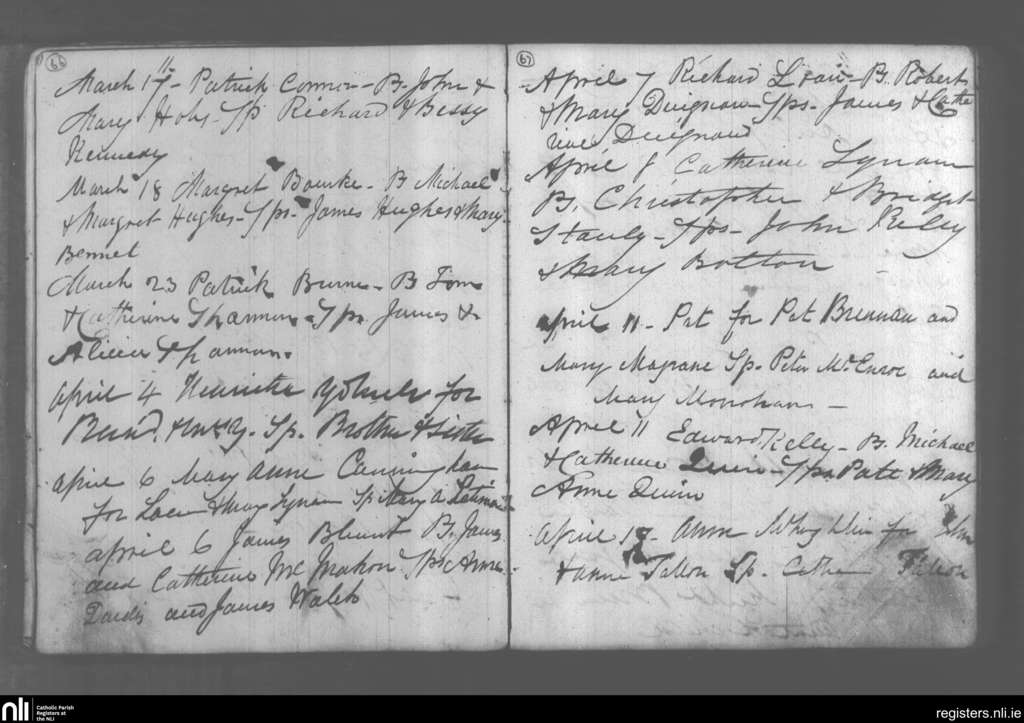 66
March 17 - Patrick Connor - B. John &
Mary Hoby - Sps Richard & Bessy
Kennedy
March 18 Margret Bourke - B Michael
& Margret Hughes - Sps - James Hughes & Mary
Bennet
March 23 Patrick Burne - B Tom
& Catherine Shannon - Sps James &
Alicia Shannon.
April 4 for
& Sp. Brother & Sister
April 6 Mary Anne Cunningham
for & Mary Lynam Sp Mary A
April 6 James Blount B. James
and Catherine Mc Mahon Sps Anne
and James Walsh
67
April 7 Richard B. Robert
& Mary Duignan - Sps - James & Cathe
rine Duignan
April 8 Catherine Lynam
B. Christopher & Bridget
Stanly - Sps - John Reley
& Mary Botton
April 11 - Pat for Pat Brennan and
Mary Magrane Sp. Peter McEnroe and
Mary Monohan -
April 11 Edward Kelly - B. Michael
& Catherine Quin - Sps Patt & Mary
Anne Quinn
April Anne for John
& Anne Fallon Sp. Cathe Fallon
nli
Catholic Parish
Registers at
the NLI
registers.nli.ie